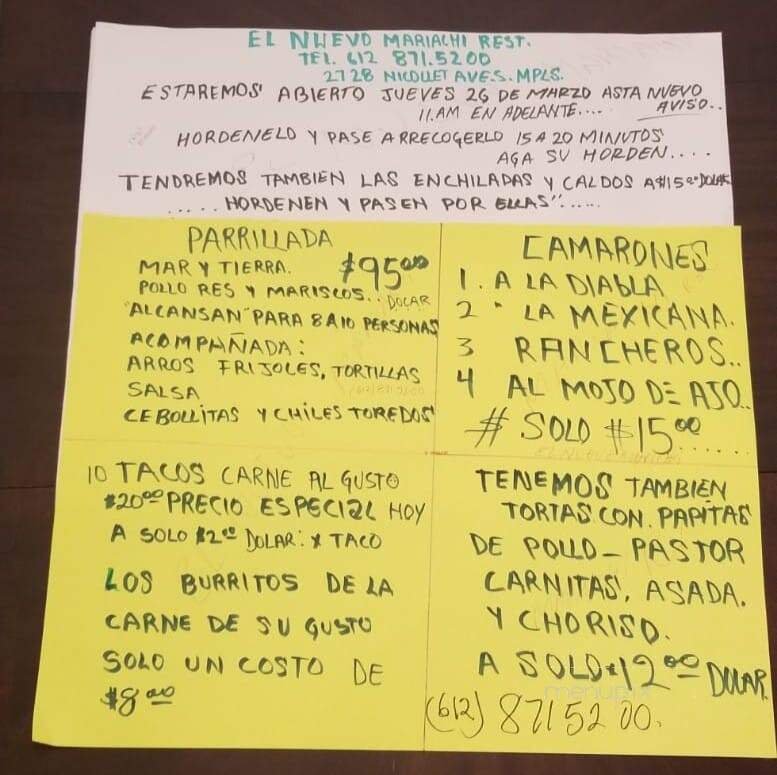 EL NUEVO MARIACHI REST.
TEL. 612 871.5200
2728 NICOLLET AVE.S. MPLS.
ESTAREMOS ABIERTO JUEVES 26 DE MARZO ASTA NUEVO
11.AM EN ADELANTE.... AVISO..
HORDENELO Y PASE A RRECOGERLO 15 A 20 MINUTOS
AGA SU HORDEN....
TENDREMOS TAMBIEN LAS ENCHILADAS Y CALDOS A $15.00 DOLAR
..... HORDENEN Y PASEN POR ELLAS".....
PARRILLADA
MAR Y TIERRA. $95.00
POLLO RES Y MARISCOS.. DOLAR
"ALCANSAN" PARA 8 A 10 PERSONAS
ACOMPAÑADA:
ARROS FRIJOLES, TORTILLAS
SALSA
CEBOLLITAS Y CHILES TOREDOS
CAMARONES
1. A LA DIABLA
2 " LA MEXICANA.
3 RANCHEROS..
4 AL MOJO DE AJO..
# SOLO $15.00......
10 TACOS CARNE AL GUSTO
$20.00 PRECIO ESPECIAL HOY
A SOLO $2.00 DOLAR: X TACO
LOS BURRITOS DE LA
CARNE DE SU GUSTO
SOLO UN COSTO DE
$8.00
TENEMOS TAMBIEN
TORTAS CON. PAPITAS
DE POLLO - PASTOR
CARNITAS, ASADA.
Y CHORISO.
A SOLO $12.00 DOLAR
menupix
(612) 871 52 00.